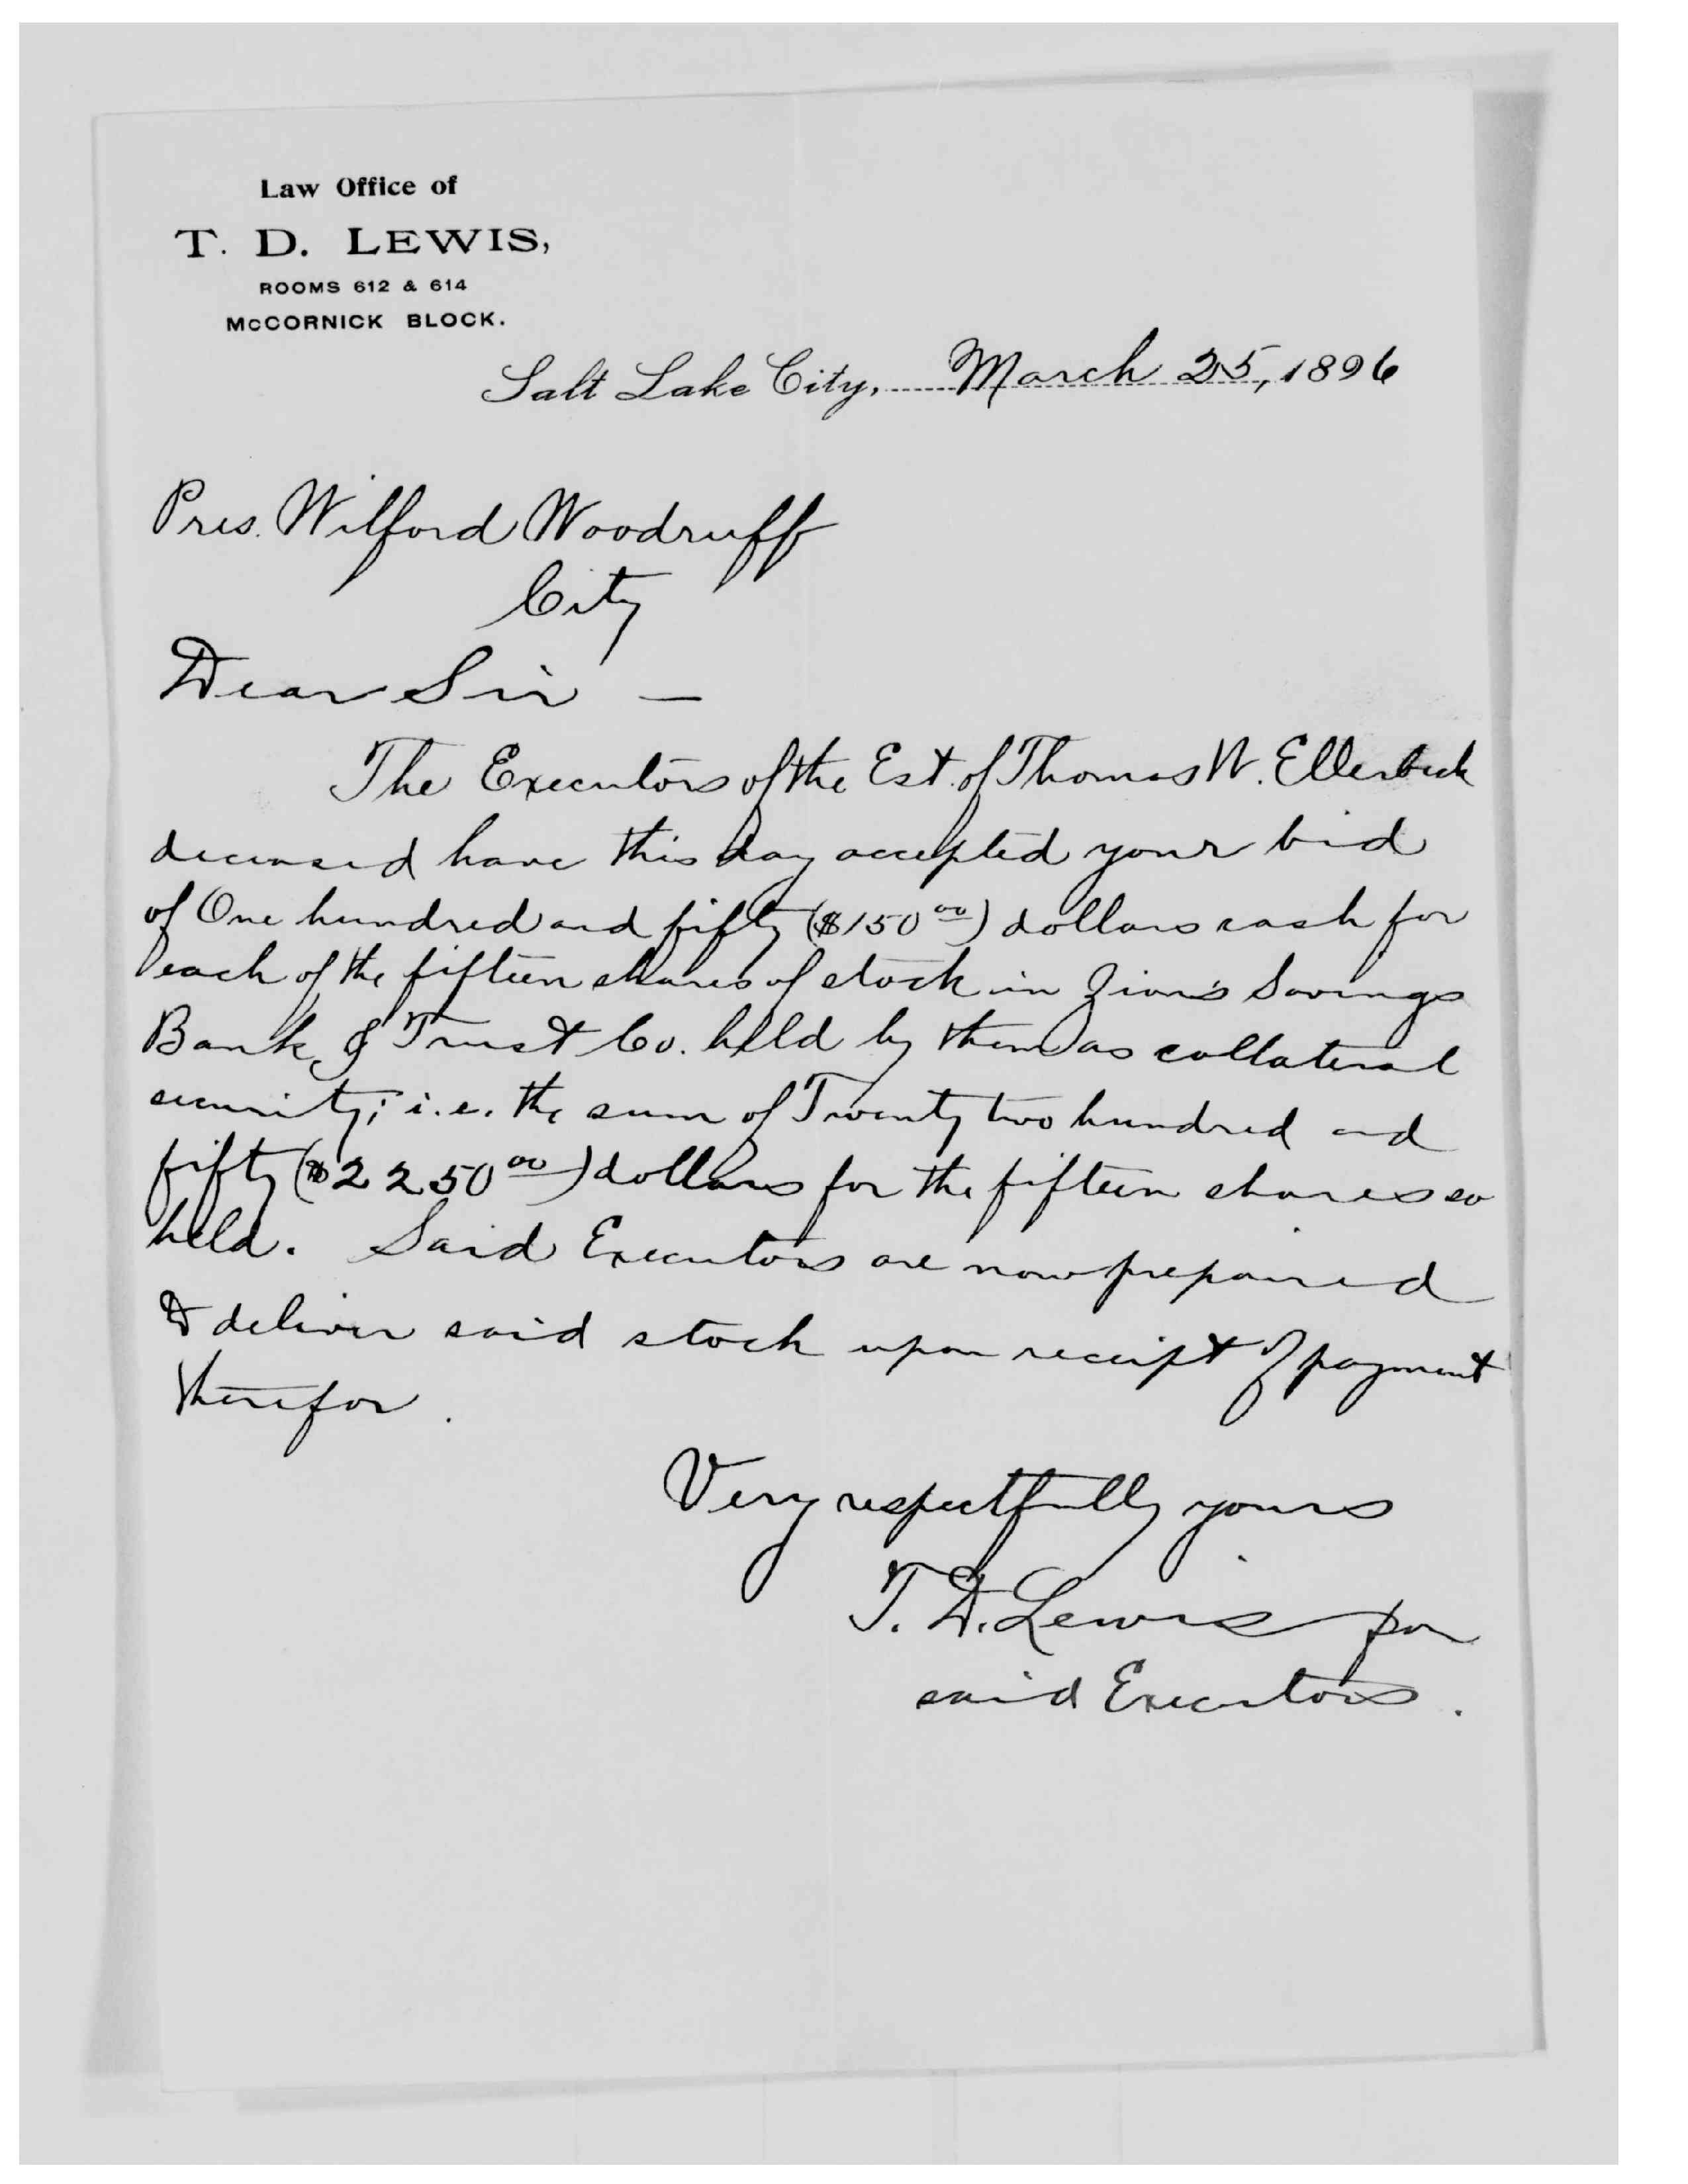 Law Office of
T. D. LEWIS,
ROOMS 612 & 614
McCORNICK BLOCK.
Salt Lake City, March 25, 1896
Pres. Wilford Woodruff
City
Dear Sir —
The Executors of the Est. of Thomas W. Ellerbeck
deceased have this day accepted your bid
of One hundred and fifty ($150 00) dollars cash for
each of the fifteen shares of stock in Zion's Savings
Bank & Trust Co. held by them as collateral
security; i.e. the sum of Twenty two hundred and
fifty ($2250 00) dollars for the fifteen shares so
held. Said Executors are now prepared
to deliver said stock upon receipt of payment
therefor.
Very respectfully yours
T. D. Lewis for
said Executors.